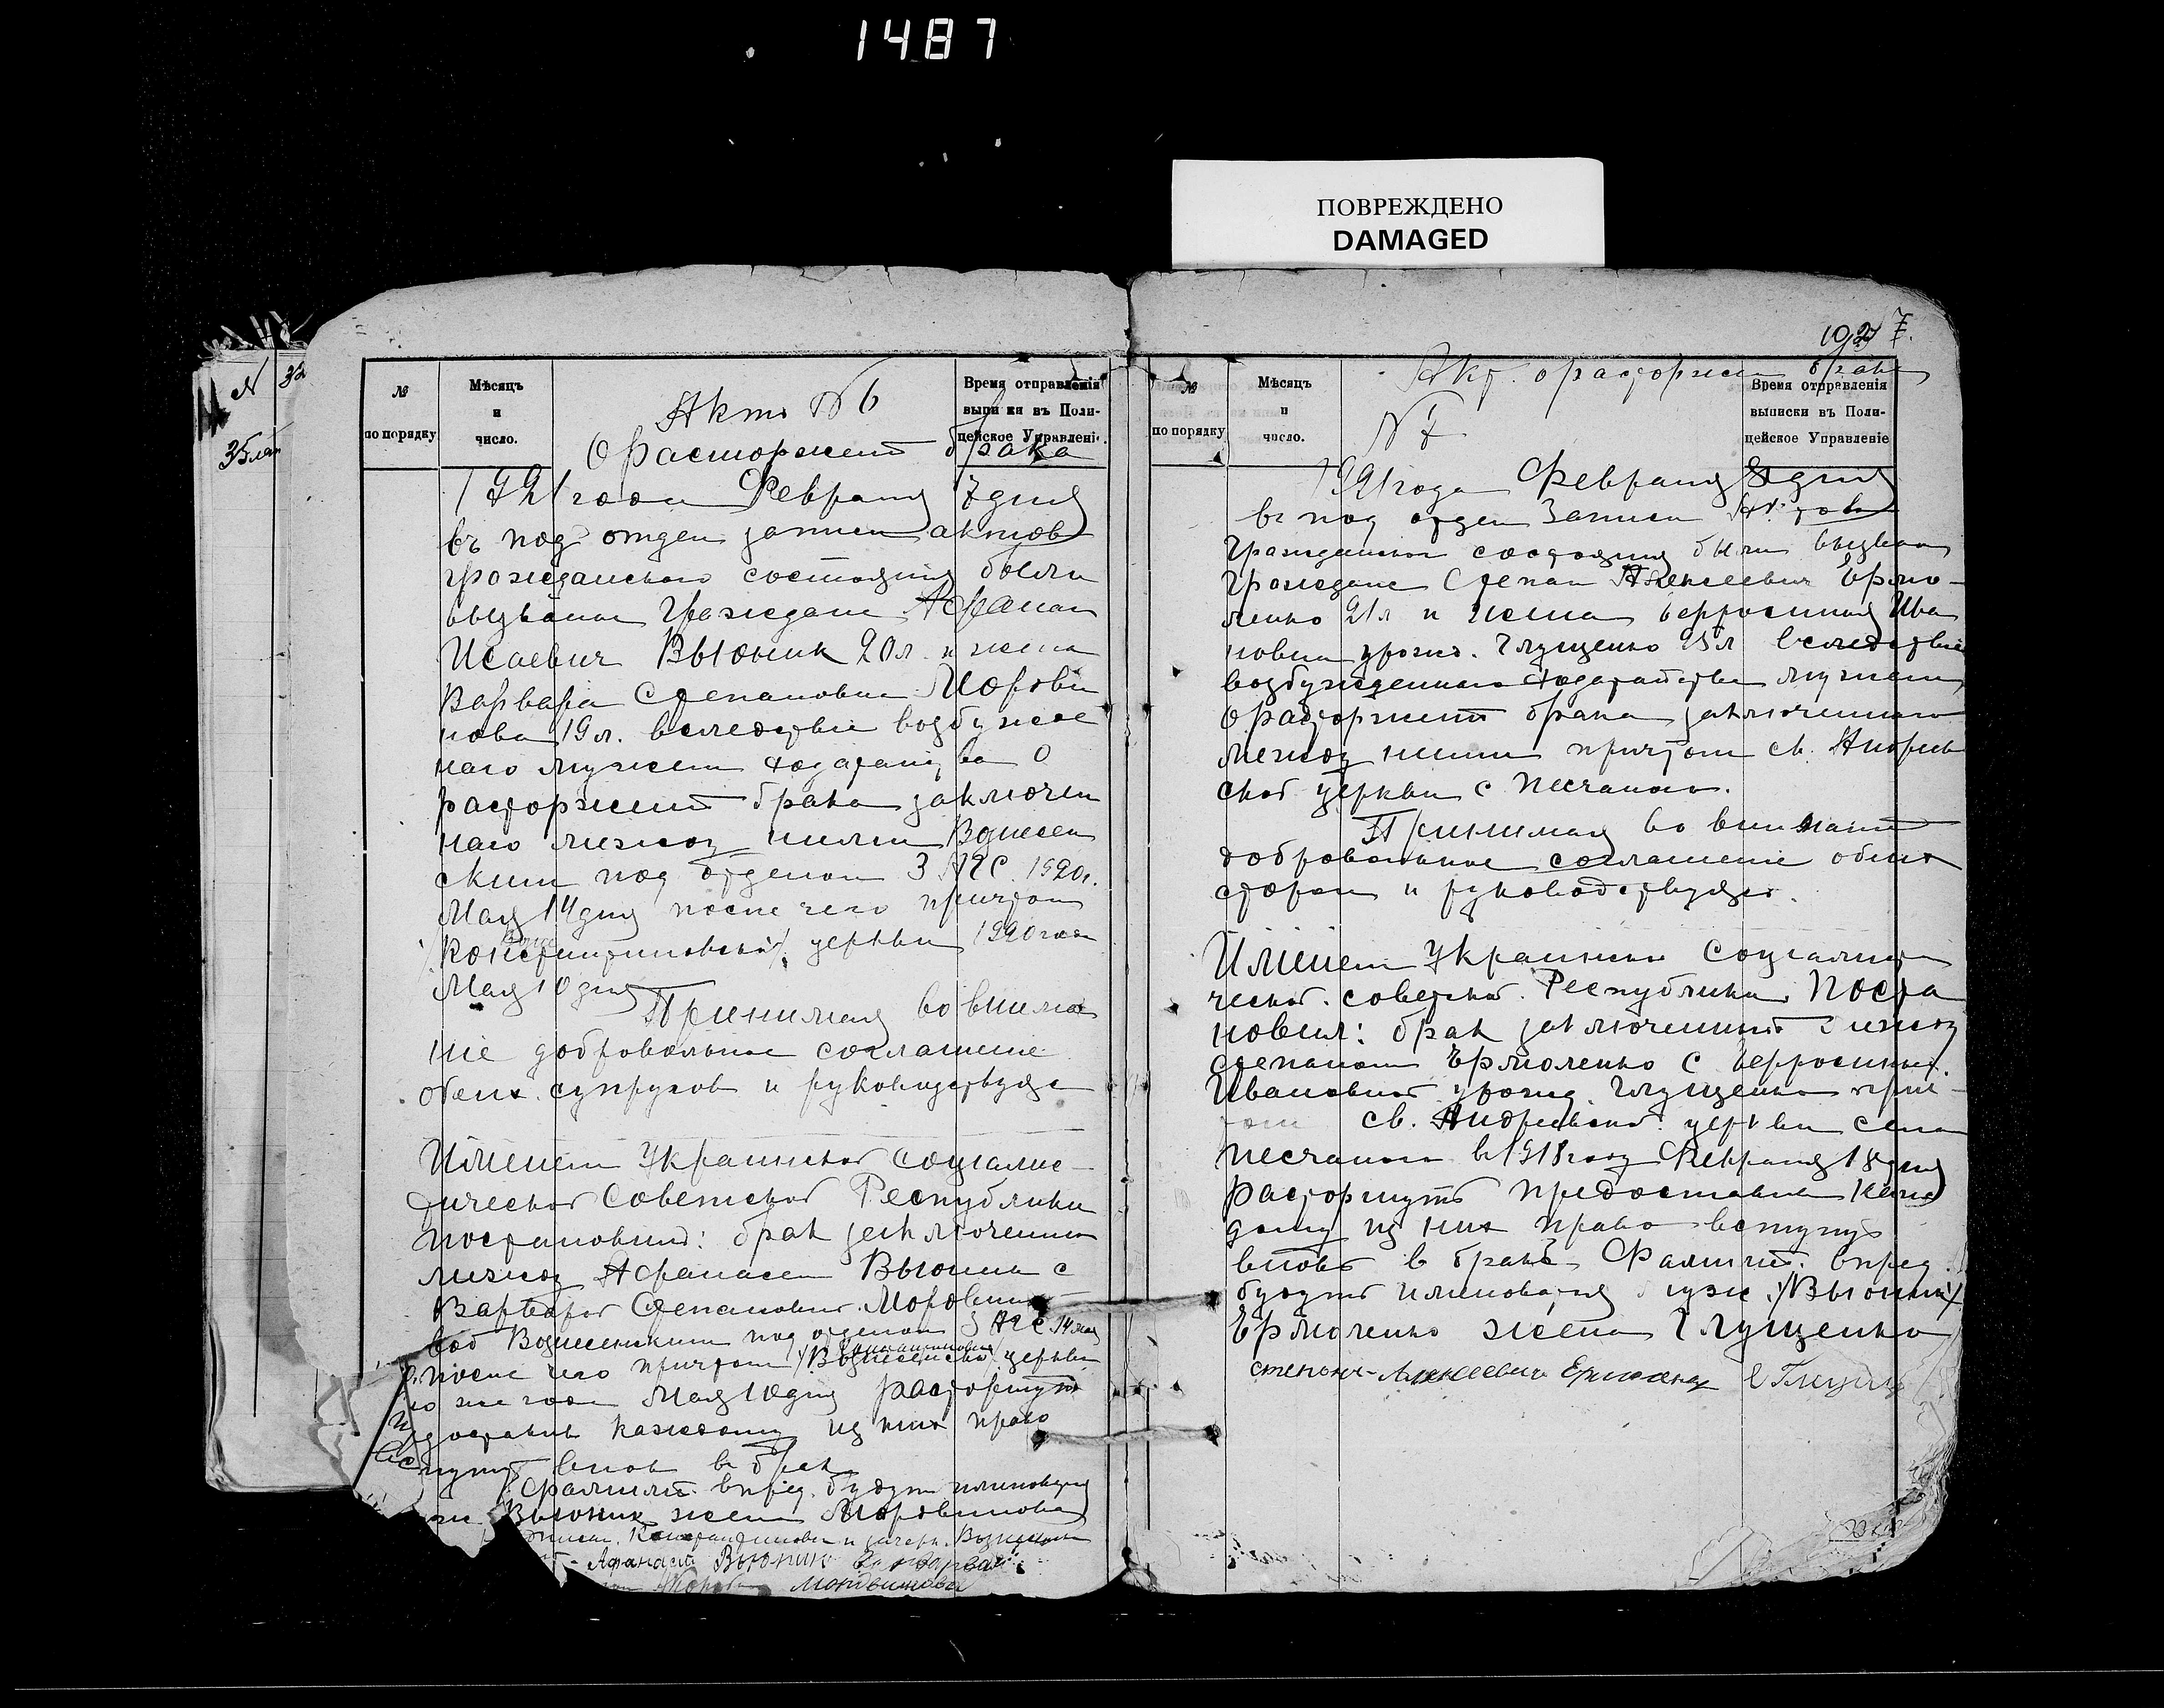 1487
ПОВРЕЖДЕНО
DAMAGED
№
35 лѣт
№
по порядку
Мѣсяцъ
и
число.
Время отправленія
выписки въ Поли-
цейское Управленіе.
Актъ № 6
О Расторжении брака
1921 года Февраля 7 дня
въ под отдел записи актов
гражданского состояния были
вызваны Граждане Афанас
Исаевич Вьюник 20 л. и жена
Варвара Степановна Мордви
нова 19 л. вследствие возбужден
наго мужем ходатайства О
расторжении брака заключен
наго между ними Вознесен
ским под отделом З АГС. 1920 г.
Мая 14 дня после чего причтом
Константиновской церкви 1920 года
Мая 10 дня
Принимая во внима
ние добровольное соглашение
обеих супругов и руководствуясь
Именем Украинской социалис-
тической Советской Республики
постановил: брак заключенный
между Афанасием Вьюник с
Варварой Степановной Мордвино-
вой Вознесенским под отделом З АГС 14 мая
после чего причтом Вознесенской церкви
го же года Мая 10 дня расторгнуть
предоставив каждому из них право
вступить вновь в брак
Фамилии впред. будут именоваться
Вьюник жена Мордвинова
Константиновки и зачеркн. Вознесенской
Афанасий Вьюник
Мордвинова
192 7.
№
по порядку
Мѣсяцъ
и
число.
Время отправленія
выписки въ Поли-
цейское Управленіе
Акт. о расторжении брака
№ 7
1921 года Февраля 8 дня
въ под отдел Записи Актов
Гражданского состояния были вызваны
Граждане Степан Алексеевич Ермо-
ленко 21 л и жена Ефросиния Ива
новна урожд. Глущенко 25 л вследствие
возбужденного ходатайства мужем
О расторжении брака заключенного
между ними причтом св. Андреев
ской церкви с Песчаного.
Принимая во внимание
добровольное соглашение обеих
сторон и руководствуясь.
Именем Украинской Социалисти
ческой советской Республики Поста
новил: брак заключенный между
Степаном Ермоленко с Ефросинией
Ивановной урожд. Глущенко прич-
том св. Андреевской церкви села
Песчаного в 1918 году Февраля 18 дня
Расторгнуть предоставив каж
дому из них право вступить
вновь в брак Фамилии впред.
будут именоваться муж /Вьюник/
Ермоленко жена Глущенко
степан Алексеевич Ермоленко Е Глущенко